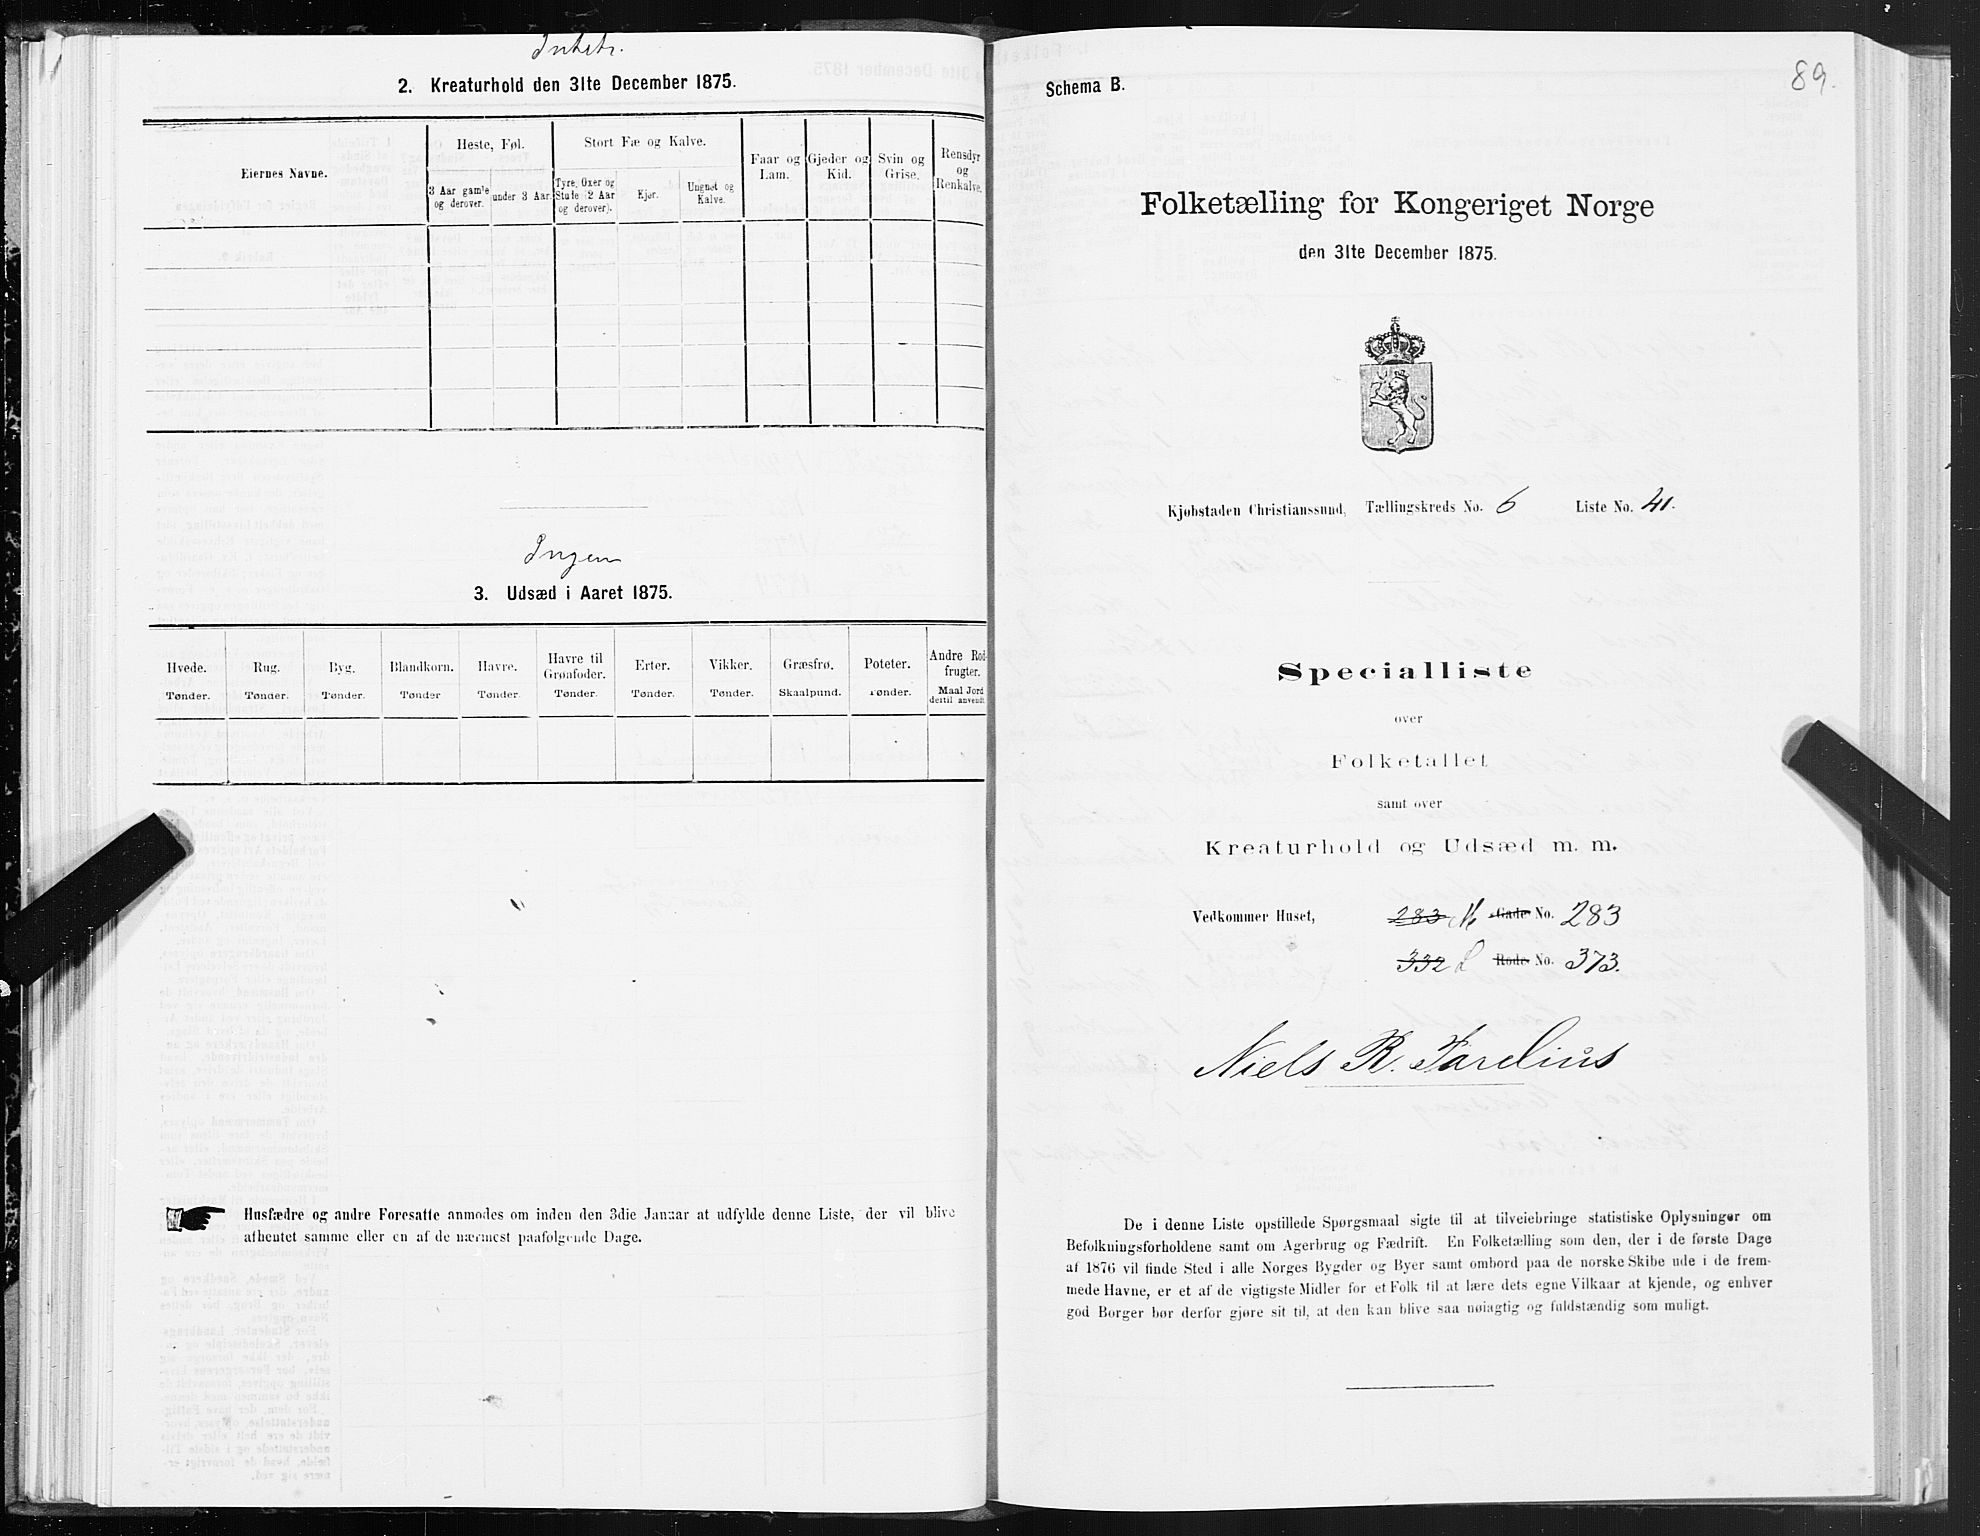 Intet.
2. Kreaturhold den 31te December 1875.
Eiernes Navne.
Heste, Føl.
Stort Fæ og Kalve.
Faar og Lam.
Gjeder og Kid.
Svin og Grise.
Rensdyr og Renkalve.
3 Aar gamle og derover.
under 3 Aar.
Tyre, Oxer og Stude (2 Aar og derover).
Kjør.
Ungnet og Kalve.
Ingen
3. Udsæd i Aaret 1875.
Hvede.
Rug.
Byg.
Blandkorn.
Havre.
Havre til Grønfoder.
Erter.
Vikker.
Græsfrø.
Poteter.
Andre Rodfrugter.
Tønder.
Tønder.
Tønder.
Tønder
Tønder.
Tønder.
Tønder.
Tønder.
Skaalpund.
Tønder.
Maal Jord dertil anvendt.
Husfædre og andre Foresatte anmodes om inden den 3die Januar at udfylde denne Liste, der vil blive
afhentet samme eller en af de nærmest paafølgende Dage.
89.
Schema B.
Folketælling for Kongeriget Norge
den 31te December 1875.
Kjøbstaden Christianssund, Tællingskreds No. 6 Liste No. 41.
Specialliste
over
Folketallet
samt over
Kreaturhold og Udsæd m. m.
Vedkommer Huset, 283 M Gade No. 283
332 L Rode No. 373.
Niels R. Parelius
De i denne Liste opstillede Spørgsmaal sigte til at tilveiebringe statistiske Oplysninger om
Befolkningsforholdene samt om Agerbrug og Fædrift. En Folketælling som den, der i de første Dage
af 1876 vil finde Sted i alle Norges Bygder og Byer samt ombord paa de norske Skibe ude i de frem-
mede Havne, er et af de vigtigste Midler for et Folk til at lære dets egne Vilkaar at kjende, og enhver
god Borger bør derfor gjøre sit til, at den kan blive saa nøiagtig og fuldstændig som muligt.